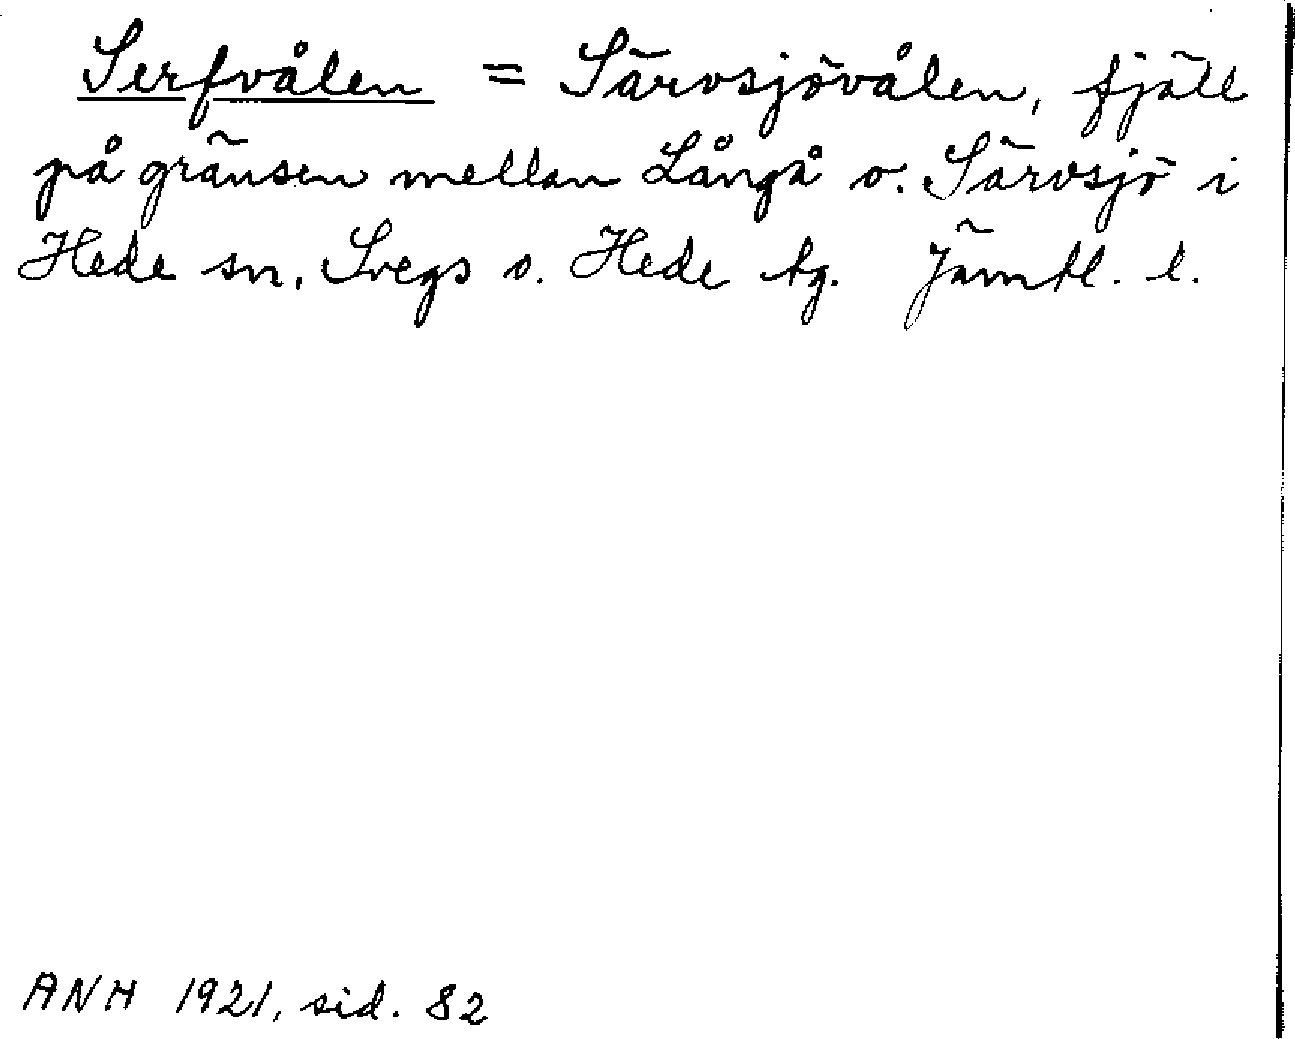 Serfvålen = Särvsjövålen, fjäll
på gränsen mellan Långå o. Särvsjö i
Hede sn, Svegs o. Hede tg. Jämtl. l.
ANH 1921, sid. 82